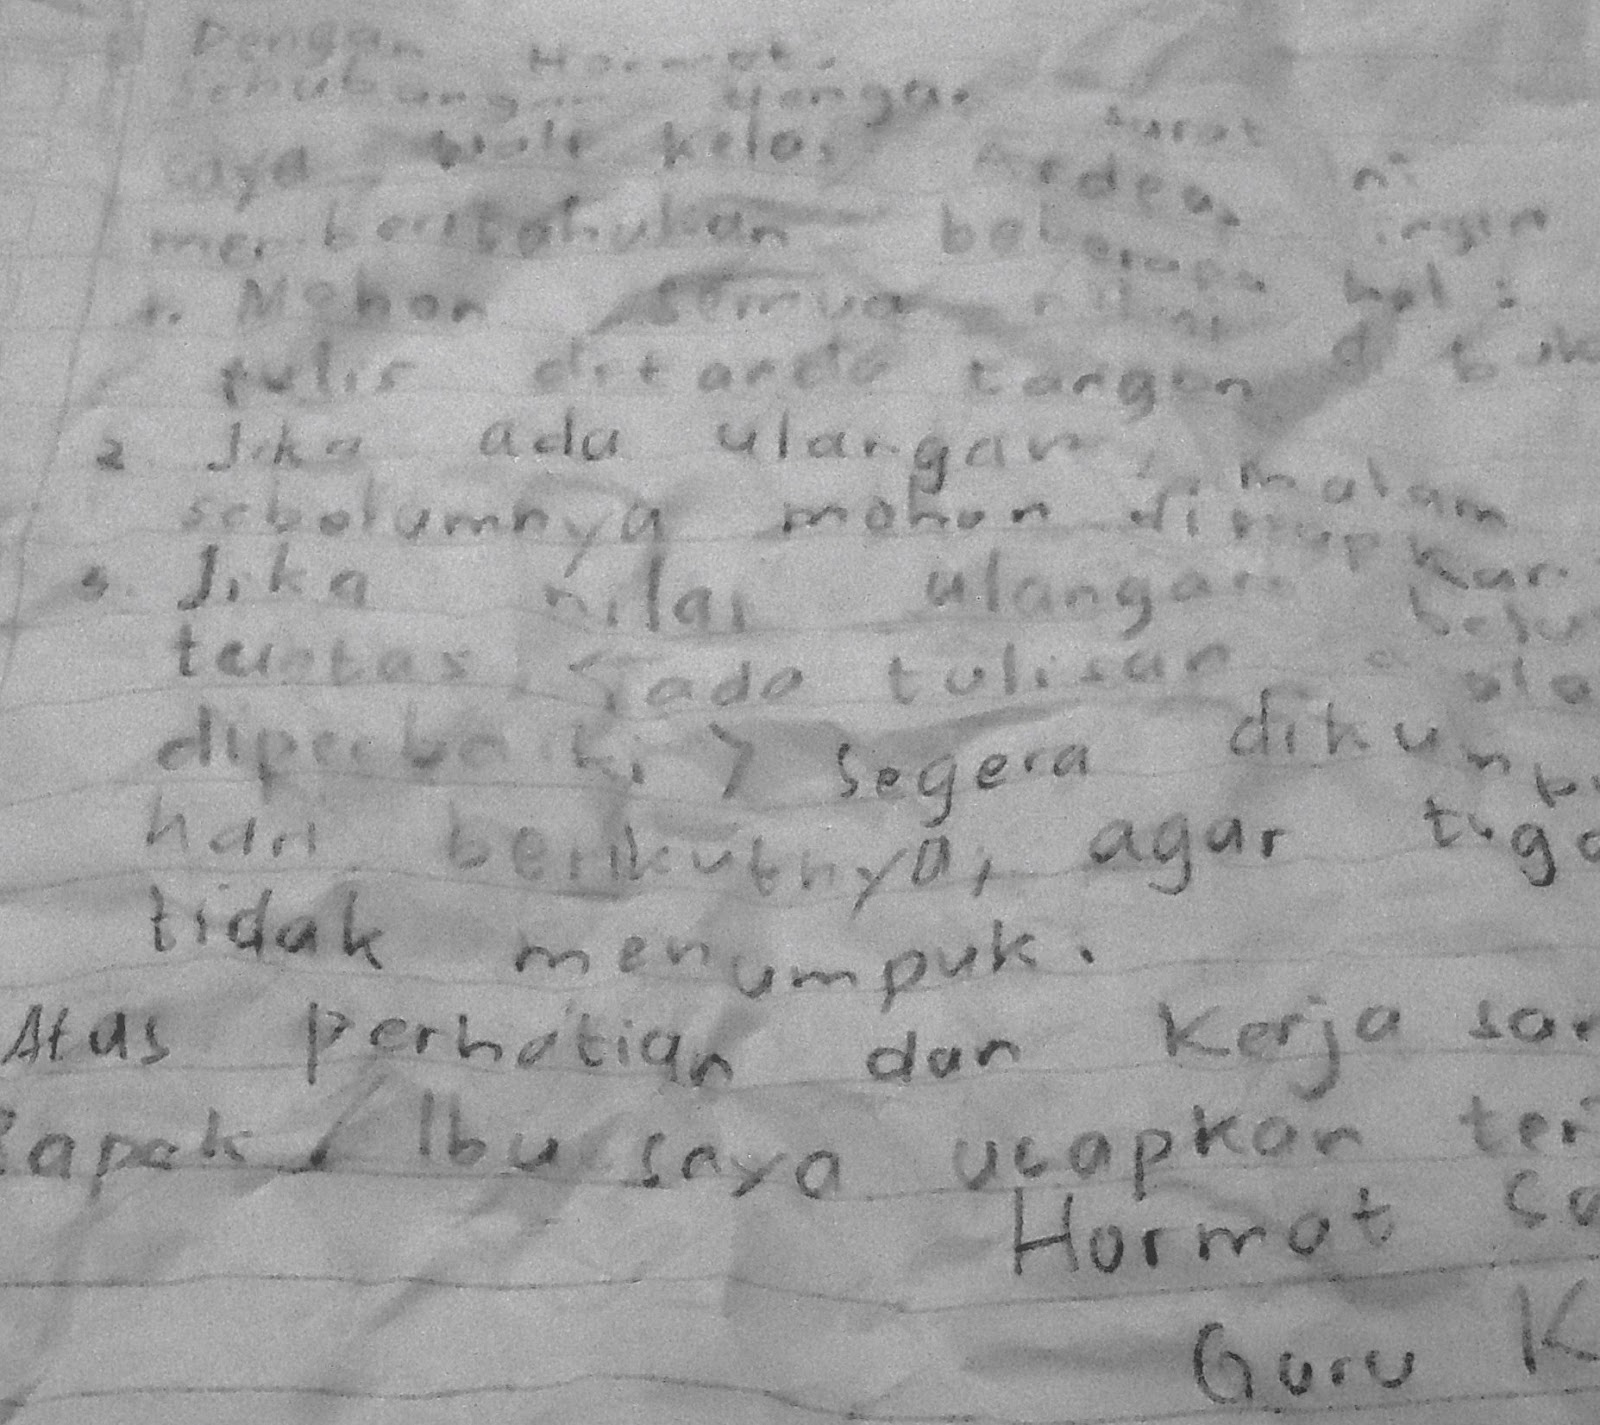 Dengan Hormat,
Sehubungan dengan surat ni
saya wali kelas ingin
memberitahukan beberapa hal :
1. Mohon semua nilai di buku
tulis ditanda tangan
2. Jika ada ulangan, malam
sebelumnya mohon disiapkan.
3. Jika nilai ulangan belu
tuntas, ada tulisan
diperbaiki > segera dikump
hari berikutnya, agar tuga
tidak menumpuk.
Atas perhatian dan kerja sa
Bapak / Ibu saya ucapkan ter
Hormat Sa
Guru K